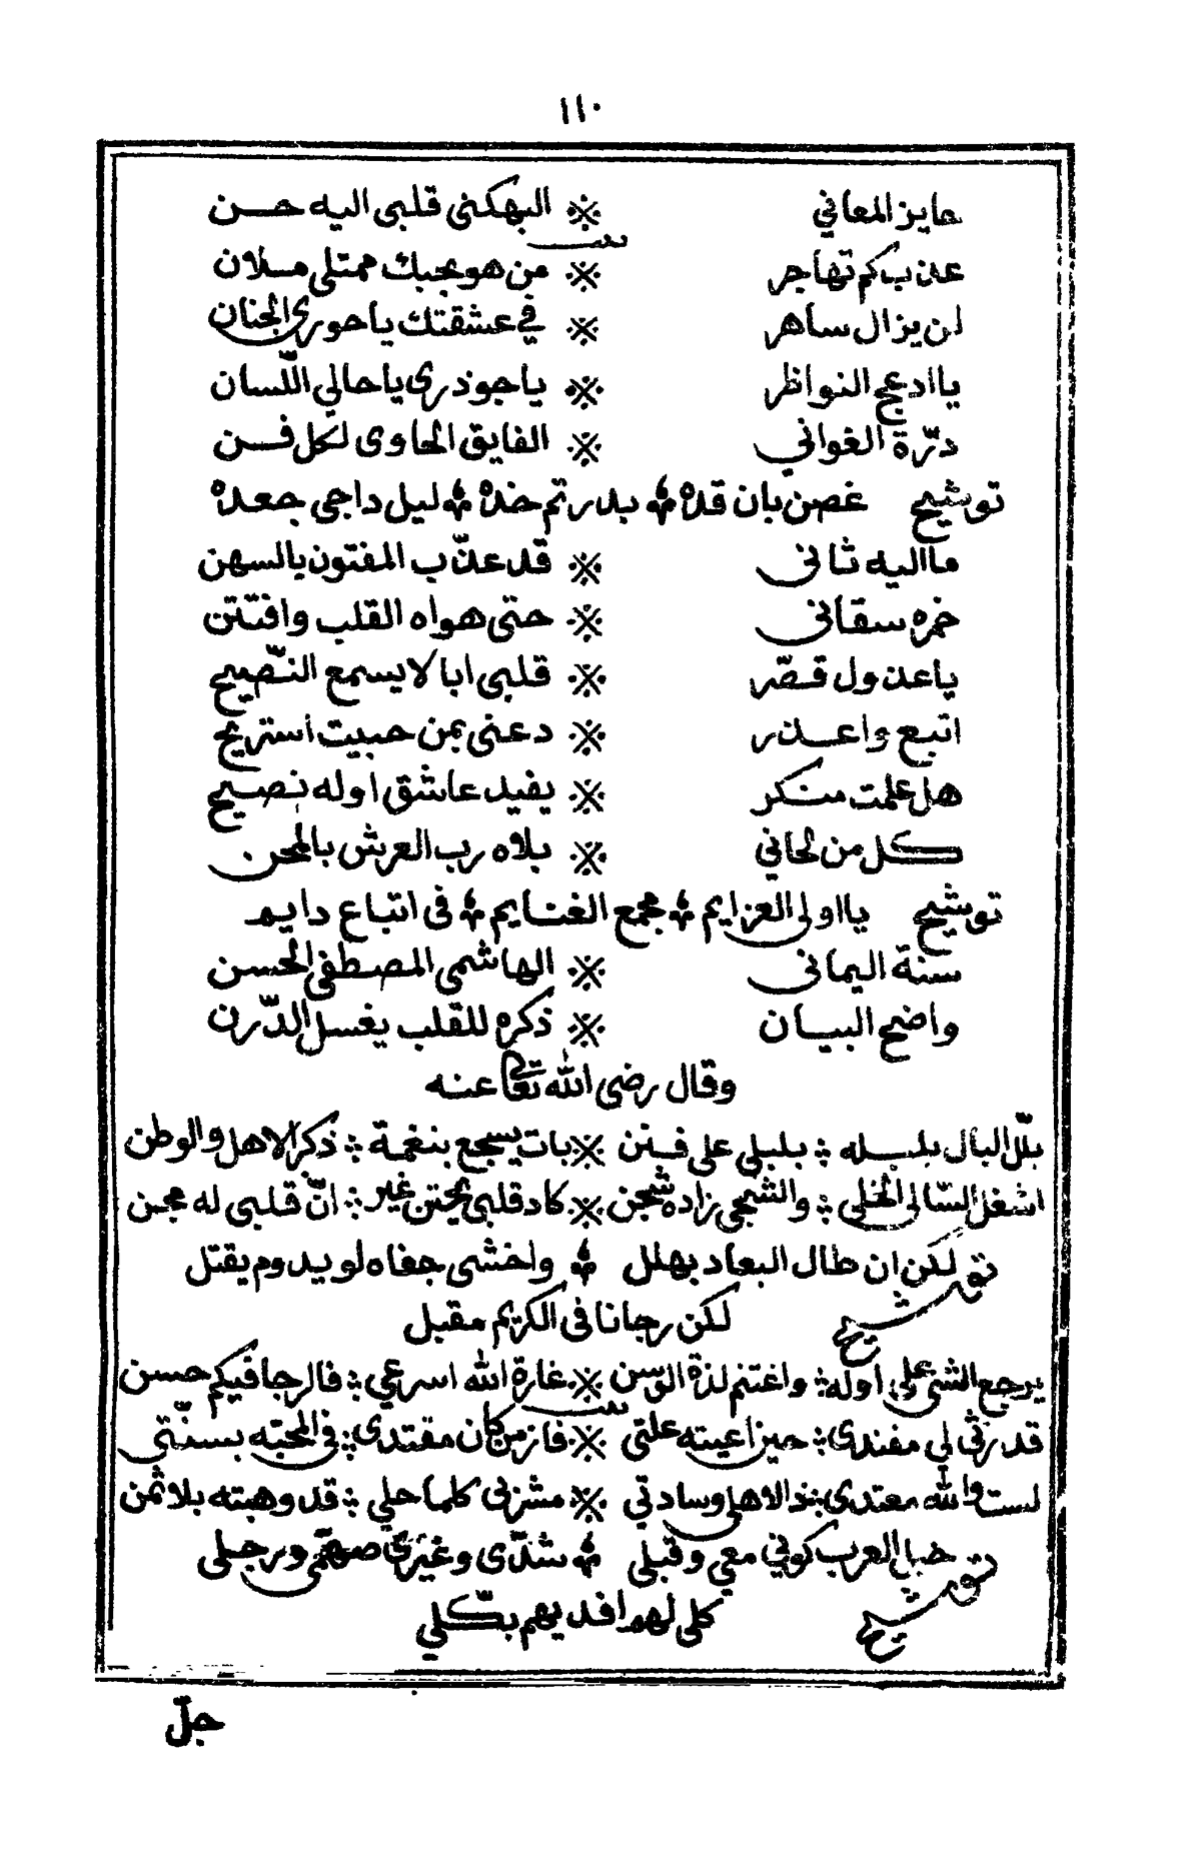 ١١٠
حايز المعاني ※ البهكنى قلبى اليه حسن
بيت
عذب كم تهاجر ※ من هو بحبك ممتلى ملان
لن يزال ساهر ※ في عشقتك ياحورى الجنان
ياادعج النواظر ※ ياجوذرى ياحالي اللّسان
درّة الغواني ※ الفايق الحاوى لكل فن
توشيح غصن بان قده ؞ بدر تم خده ؞ ليل داجى جعده
مااليه ثانى ※ قد عذّب المفتون بالسهن
خمره سقانى ※ حتى هواه القلب وافتتن
ياعذول قصّر ※ قلبى ابا لايسمع النّصيح
اتبع واعذر ※ دعنى بمن حبيت استريح
هل علمت منكر ※ يفيد عاشق اوله نصيح
كل من لحاني ※ بلاه رب العرش بالمحن
توشيح يااولى العزايم ؞ مجمع الغنايم ؞ فى اتباع دايم
سنة اليمانى ※ الهاشمى المصطفى الحسن
واضح البيان ※ ذكره للقلب يغسل الدّرن
وقال رضى الله تعالى عنه
بلّل البال بلبله ؞ بلبلى على فنن ※ بات يسجع بنغمة ؞ ذكر الاهل والوطن
اشغل السّالى الخلى ؞ والشجى زاده شجن ※ كاد قلبى يختن غير ؞ انّ قلبى له مجن
توشيح لكن ان طال البعاد بهلل ؞ واخشى جفاه لو يدوم يقتل
لكن رجانا فى الكريم مقبل
يرجع الشى على اوله ؞ واغتنم لذة الوسن ※ غارة الله اسرعي ؞ فالرجا فيكم حسن
بيت
قد رثى لي مفندى ؞ حين اعيته علتى ※ فاز من كان مقتدى ؞ فى المحبّه بسنّتى
لست والله معتدى ؞ بذ الاهل وسادتي ※ مشربى كلما حلي ؞ قد وهبته بلا ثمن
توشيح خبل العرب كوني معي وقبلى ؞ شدّى وغيرى صهّمى ورجلى
كلى لهم افديهم بكّلي
جلّ